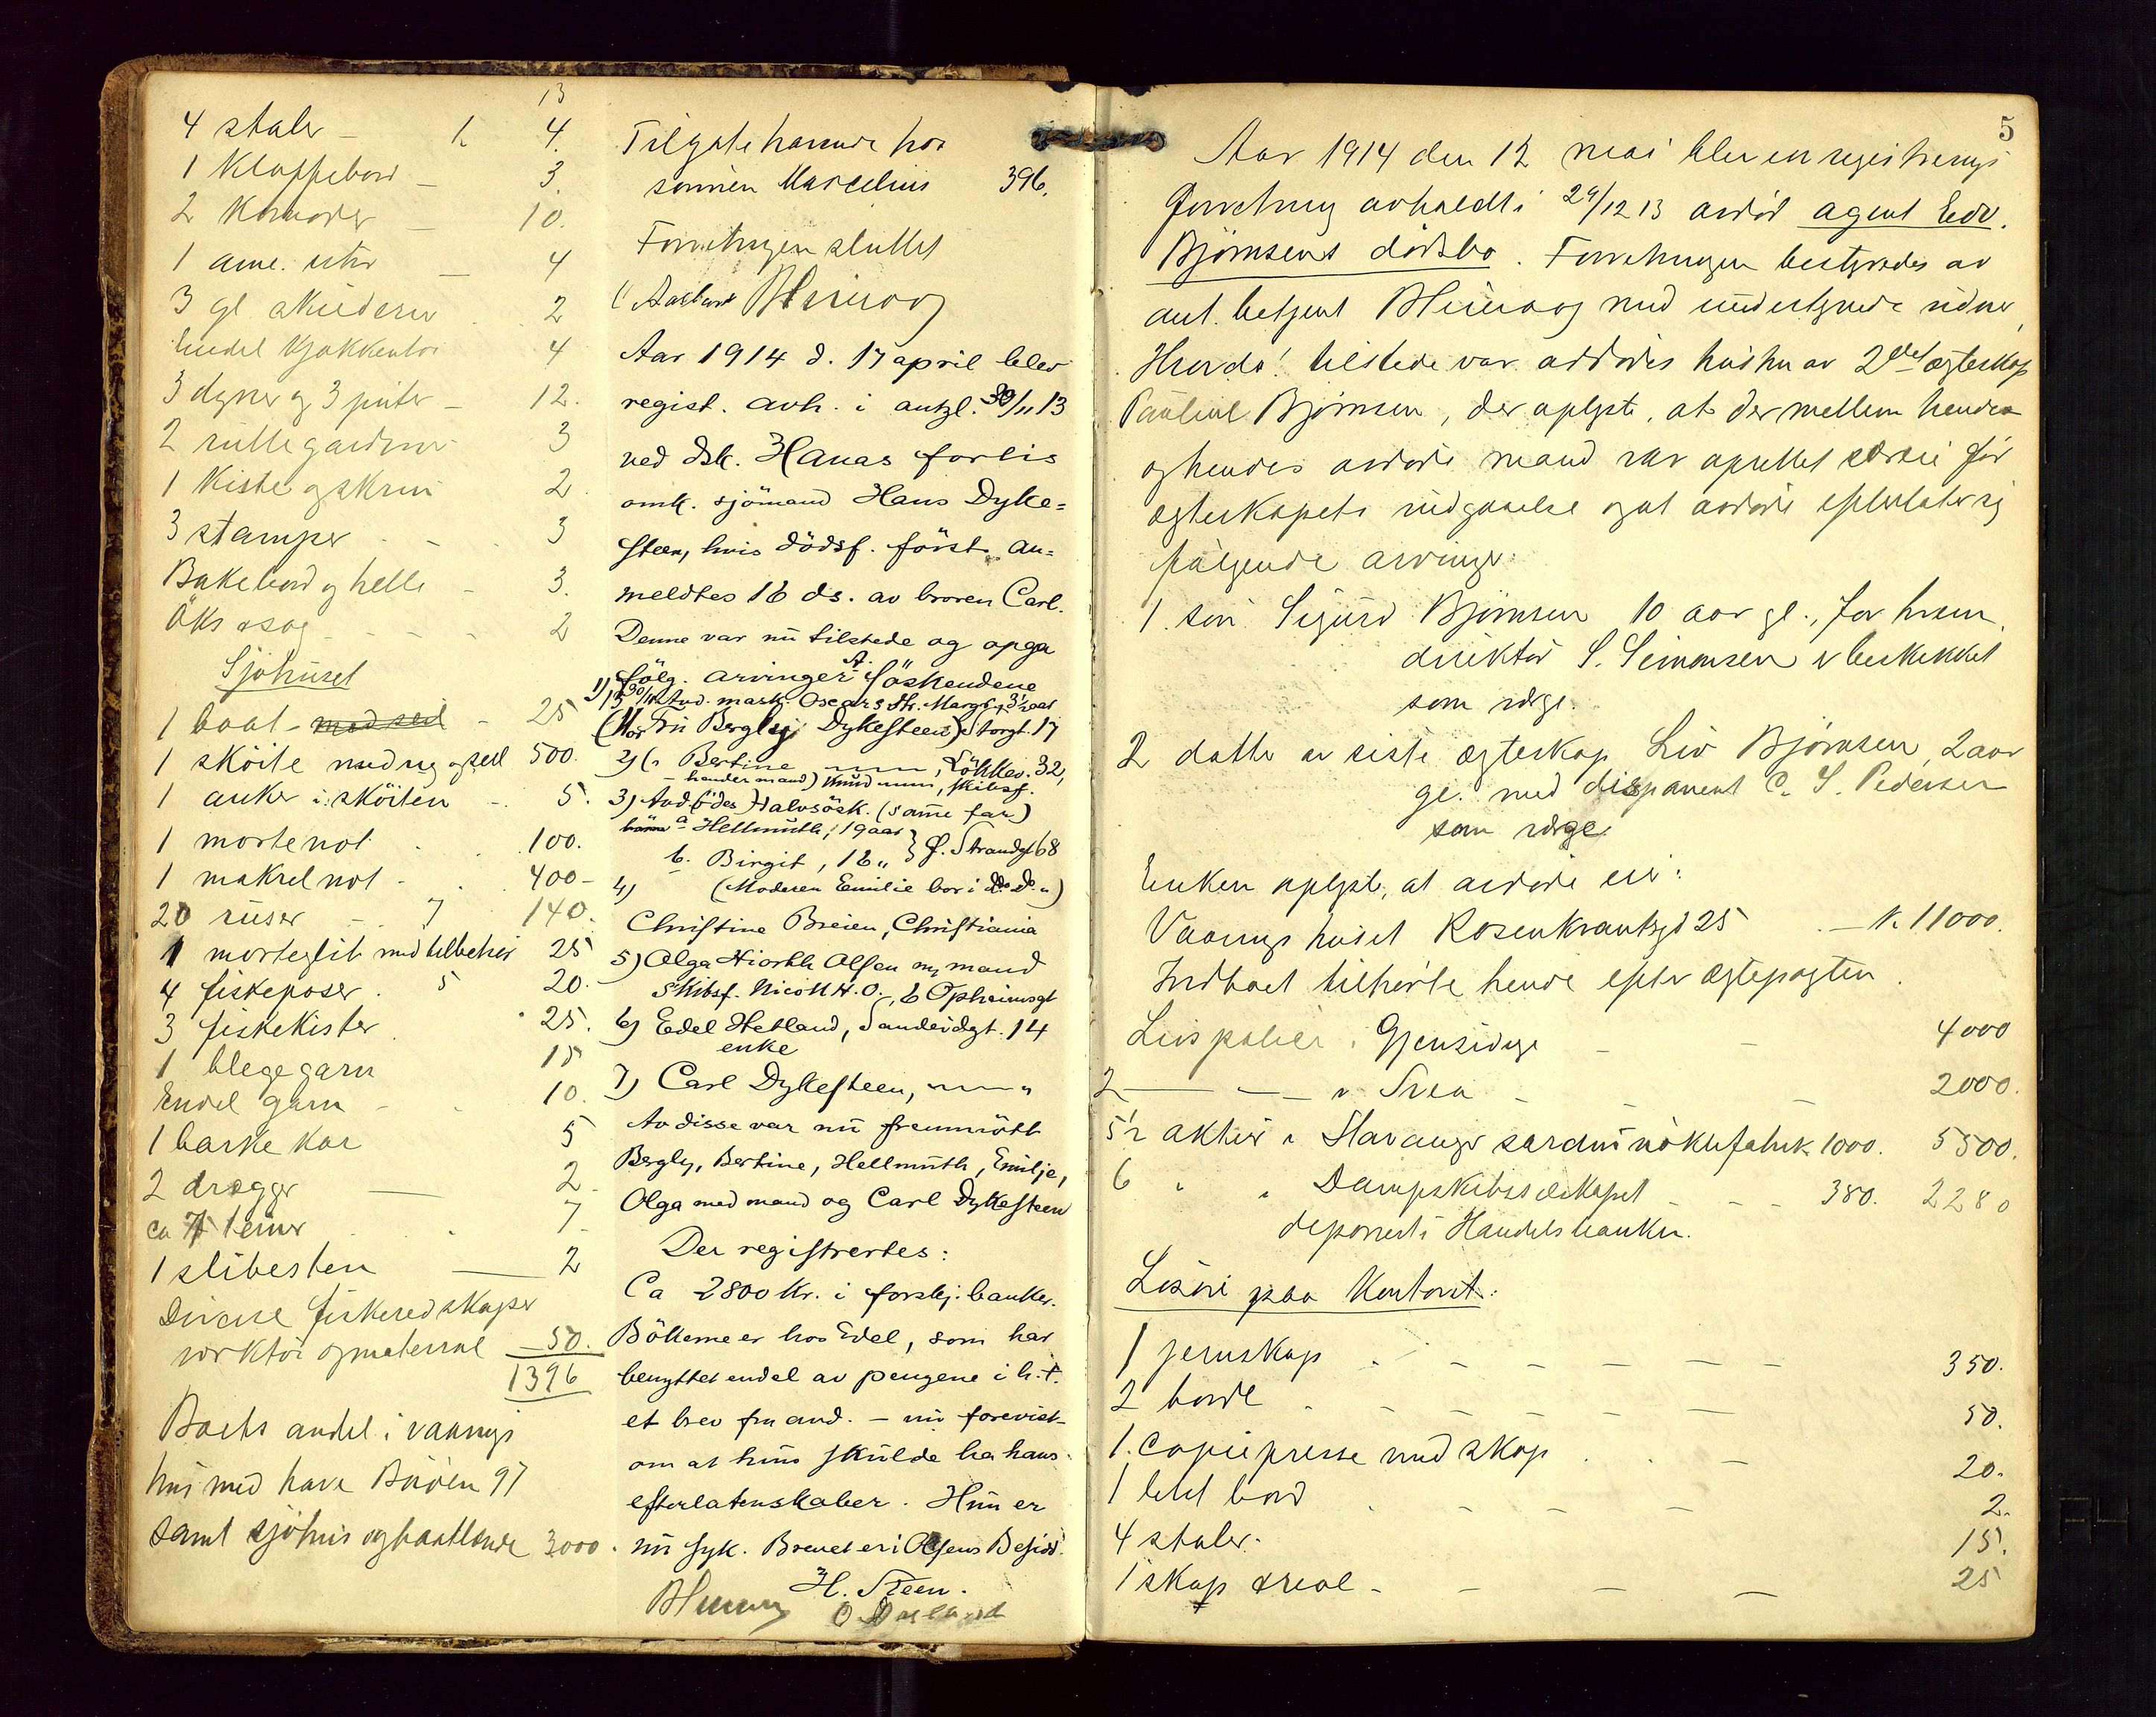 13
4 stoler - 1 4.
1 Klappebord - 3.
2 Komoder - 10.
1 ame. - 4
3 gl skilderier 2
Endel kjøkkentøi 4
3 dyner og 3 puter - 12.
2 rullegardiner 3
1 Kiste og skrin 2
3 stamper - - 3
Bakebord og helle - 3.
Øks & sag - - - 2
Sjøhuset
1 baat - med seil - 25
1 sköite med og seil 500.
1 anker i sköiten - 5.
1 mortenot 100.
1 makrelnot - 400-
20 ruser - 7 140.
1 med tilbehør 25
4 fiskeposer . 5 20.
3 fiskekister 25.
1 blegegarn 15
Endel garn - 10.
1 barkekar 5
2 dragger — 2
ca 7 teiner 7
1 slibesten — 2
Diverse fiskeredskaper
verktøi og material - 50.
1396
Boets andel i vaanings
hus med have Børøen 97
samt sjøhus og baatlænde 3000.
Tilgodehavende hos
sønnen Marcelius 396.
Forretningen sluttet
Aar 1914 d. 17 april blev
regist. avh. i antgl. 30/11 13
ved Dsk. Hanas forlis
omk. sjömand Hans Dyke=
steen, hvis dödsf. först an=
meldtes 16 ds. av broren Carl.
Denne var nu tilstede og opga
fölg. arvinger: A. Söskendene
(Mor Fru Bergly Dykesteen) Storgt. 17
2) ( Bertine —"—, Lökkev. 32,
- hendes mand) Knud —"—, skibsf.
3) Avd. födes Halvsösk. (samme far)
börn a Hellmuth, 19 aar
b. Birgit, 16 „ } Ø. Strandgt 68
4) (Moderen Emilie bor i do do „)
Christine Breien, Christiania
5) Olga Hiorth Olsen m/ mand
Skibsf. Nicol H. O., 6 Opheimsgt
6) Edel Hetland, Sandeidgt. 14
enke
7) Carl Dykesteen, —"— „
Av disse var nu fremmött
Bergly, Bertine, Hellmuth, Emilje,
Olga med mand og Carl Dykesteen
Der registrertes:
Ca 2800 Kr. i forskj. banker.
Bökerne er hos Edel, som har
benyttet endel av pengene i h.t.
et brev fra avd. - nu forevist -
om at hun skulde ha hans
efterlatenskaber. Hun er
nu syk. Brevet er i Olsens Besidd.
H. Steen.
5
Aar 1914 den 12 mai blev en registrerings
forretning avholdt i 29/12 13 avdød agent Edv.
Bjørnsens dødsbo. Forretningen bestyredes av
aut. betjent med undertegnede vidner
Hvorda! tilstede var avdødes hustru av 2det egteskap
Pauline Bjørnsen, der oplyste, at der mellem hende
og hendes avdøde mand var oprettet særeie før
egteskapets indgaaelse og at avdøde efterlater sig
følgende arvinger:
1. søn Sigurd Bjørnsen 10 aar gl., for hvem
direktør S. Simonsen er beskikket
som værge.
2 datter av siste egteskap Liv Bjørnsen, 2 aar
gl. med disponent C. S. Pedersen
som værge.
Enken oplyste, at avdøde eier:
Vaaningshuset Rosenkrantzgt 25 - K. 11000.
Indboet tilhørte hende efter egtepagten.
Livspolice i Gjensidige - - 4000
2 — — " - - - 2000.
5½ aktier i Stavanger sardinnøklefabrik 1000. 5500.
6 " " Dampskibsselskapet - - 380. 2280
deponert i Handelsbanken.
Løsøre paa Kontoret:
1 jernskap - - - - - - 350.
2 borde - - - - - 50.
1. Copiepresse med skap . . - 20.
1 litet bord - - - 2.
4 stoler - 15.
1 skap & reol - - - - 25